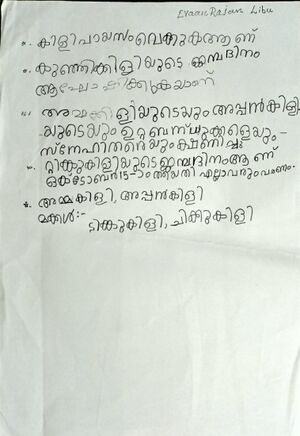 Evaan Rajan Libu
*. കിളിപായസംവെക്കുകആണ്
*. കുഞ്ഞിക്കിളിയുടെ ജന്മദിനം
ആഘോഷിക്കുകയാണ്
അമ്മക്കിളിയുടെയും അപ്പൻകിളി
യുടെയും ഉറ്റബന്ധുക്കളെയും-
സ്നേഹിതരെയുംക്ഷണിച്ചു
*. റ്റിക്കുകിളിയുടെജന്മദിനംആണ്
ഒക്ടോബർ15-ാംതീയതി എല്ലാവരുംവരണം.
*. അമ്മകിളി, അപ്പൻകിളി
മക്കൾ:-
ടിങ്കുകിളി, ചിക്കുകിളി